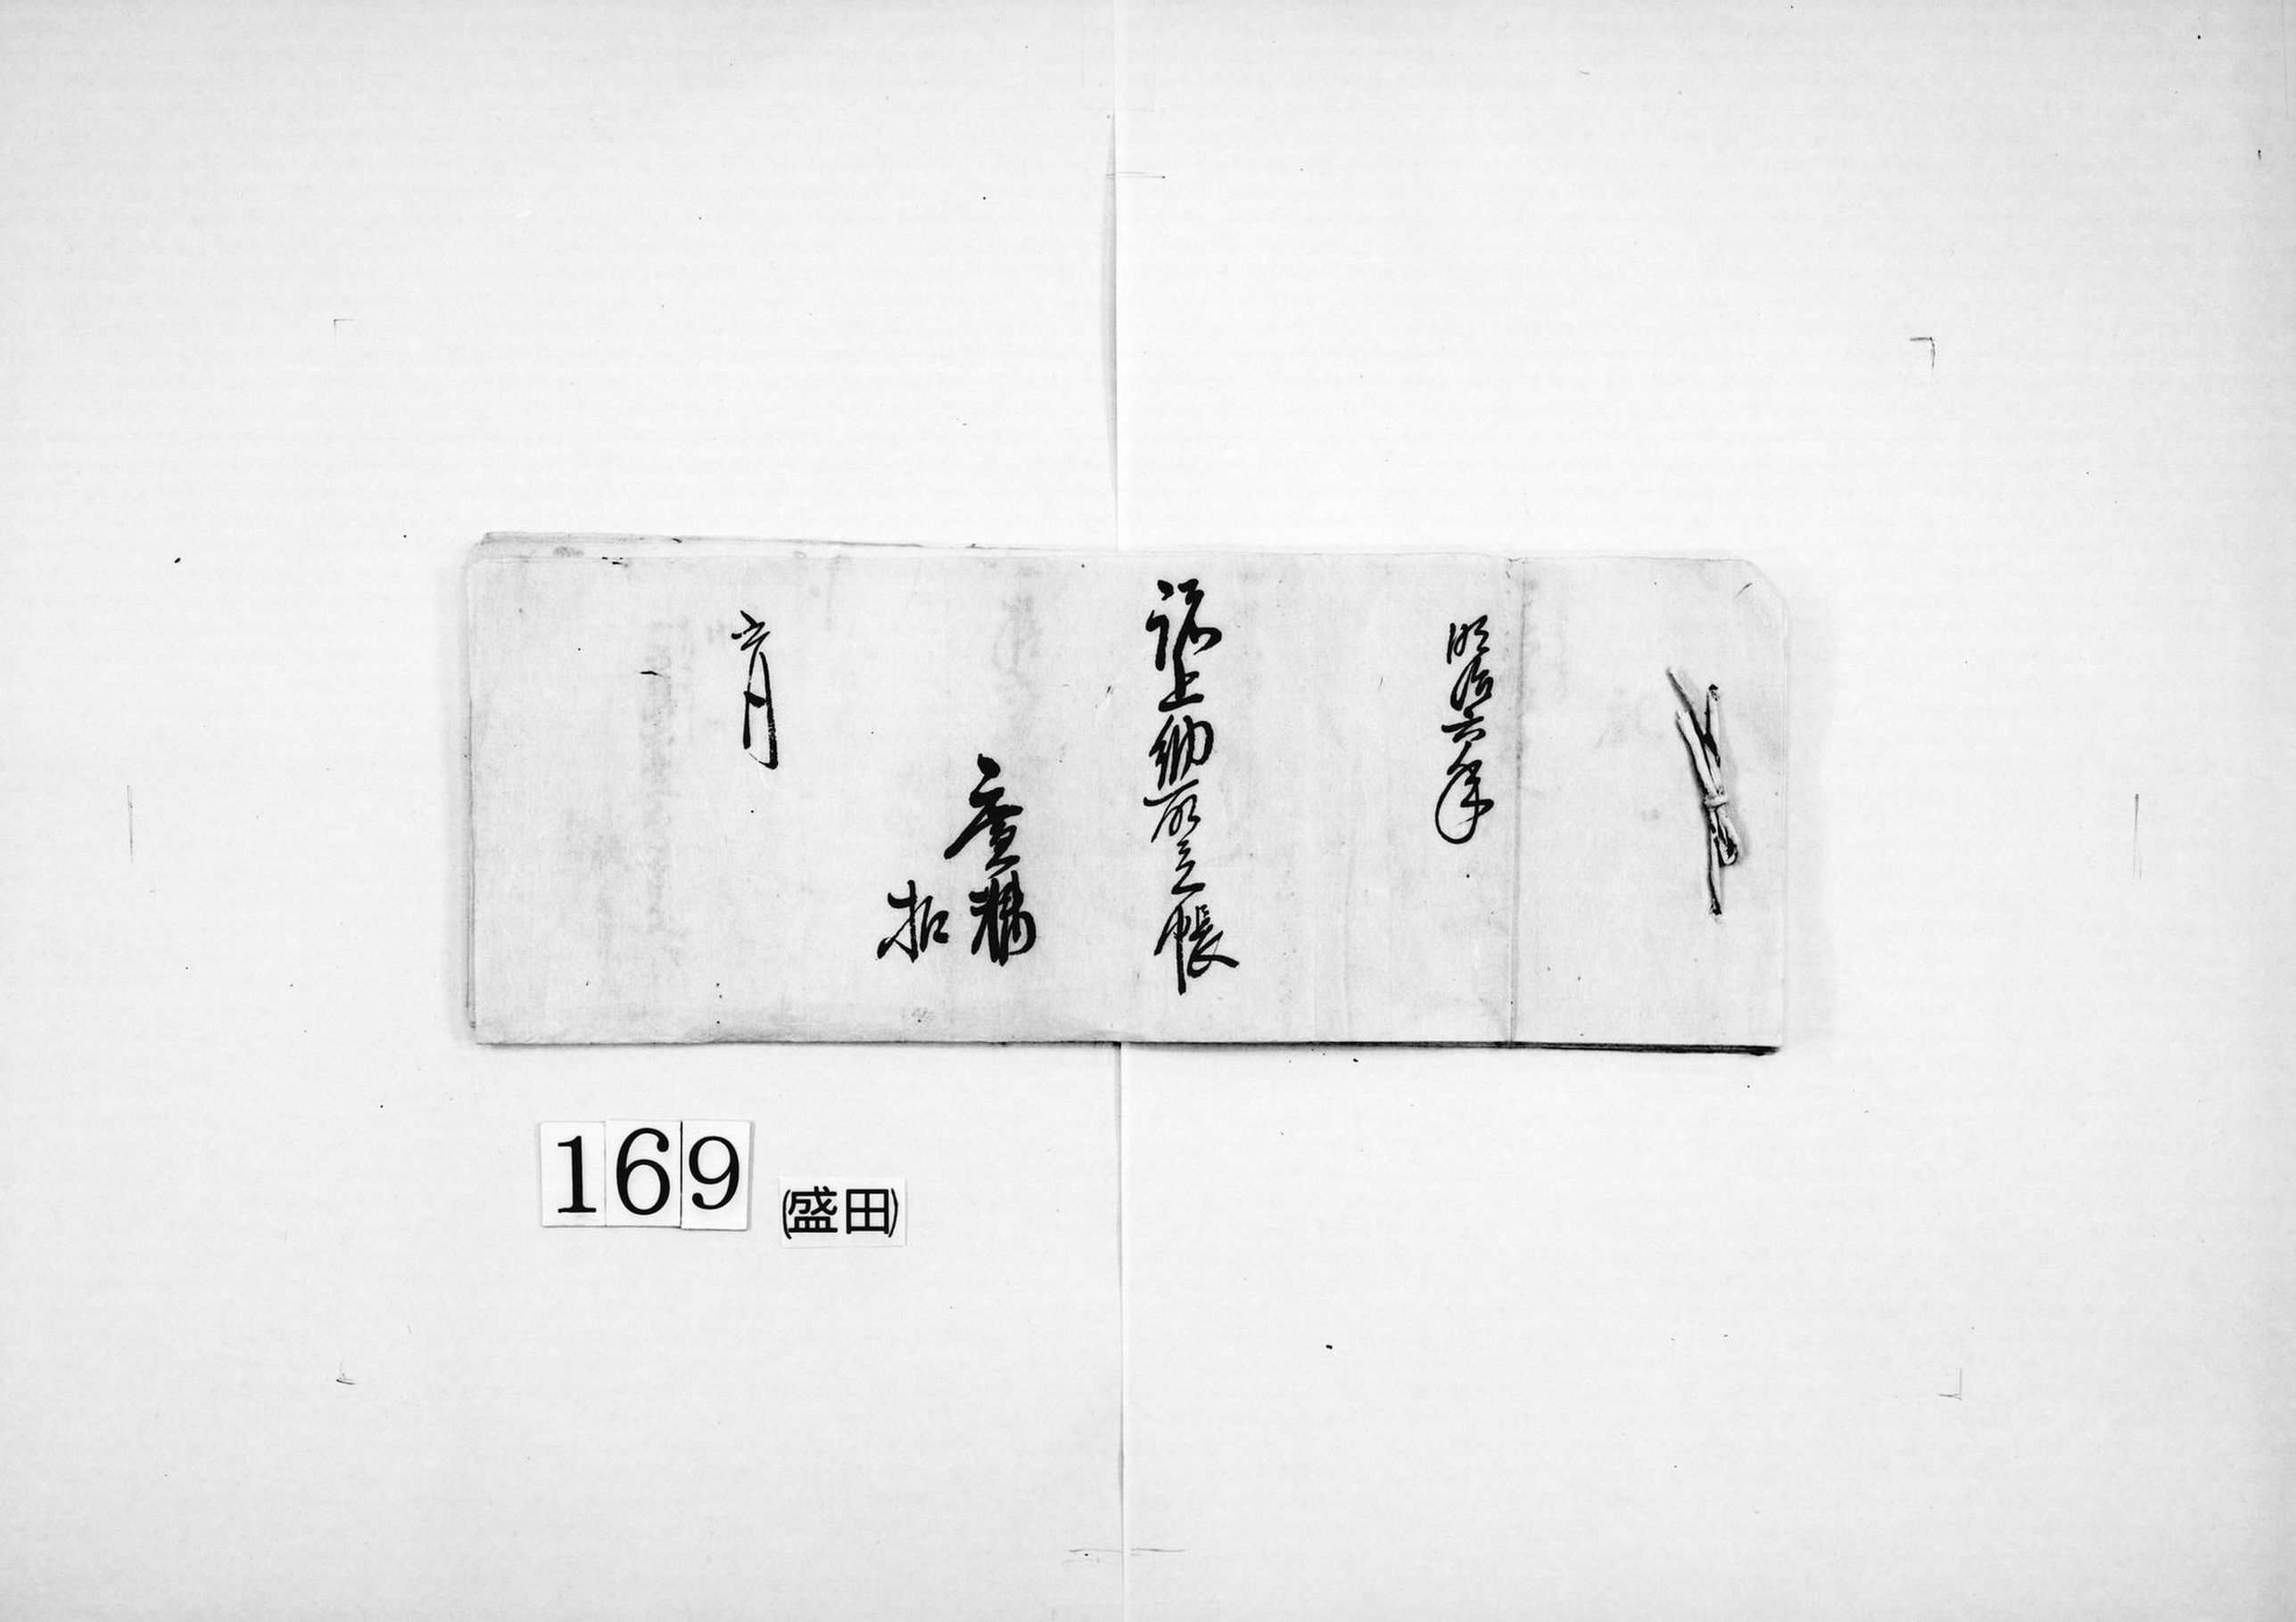 明治六年
諸上納取立帳
扣
六月
169
(盛田)